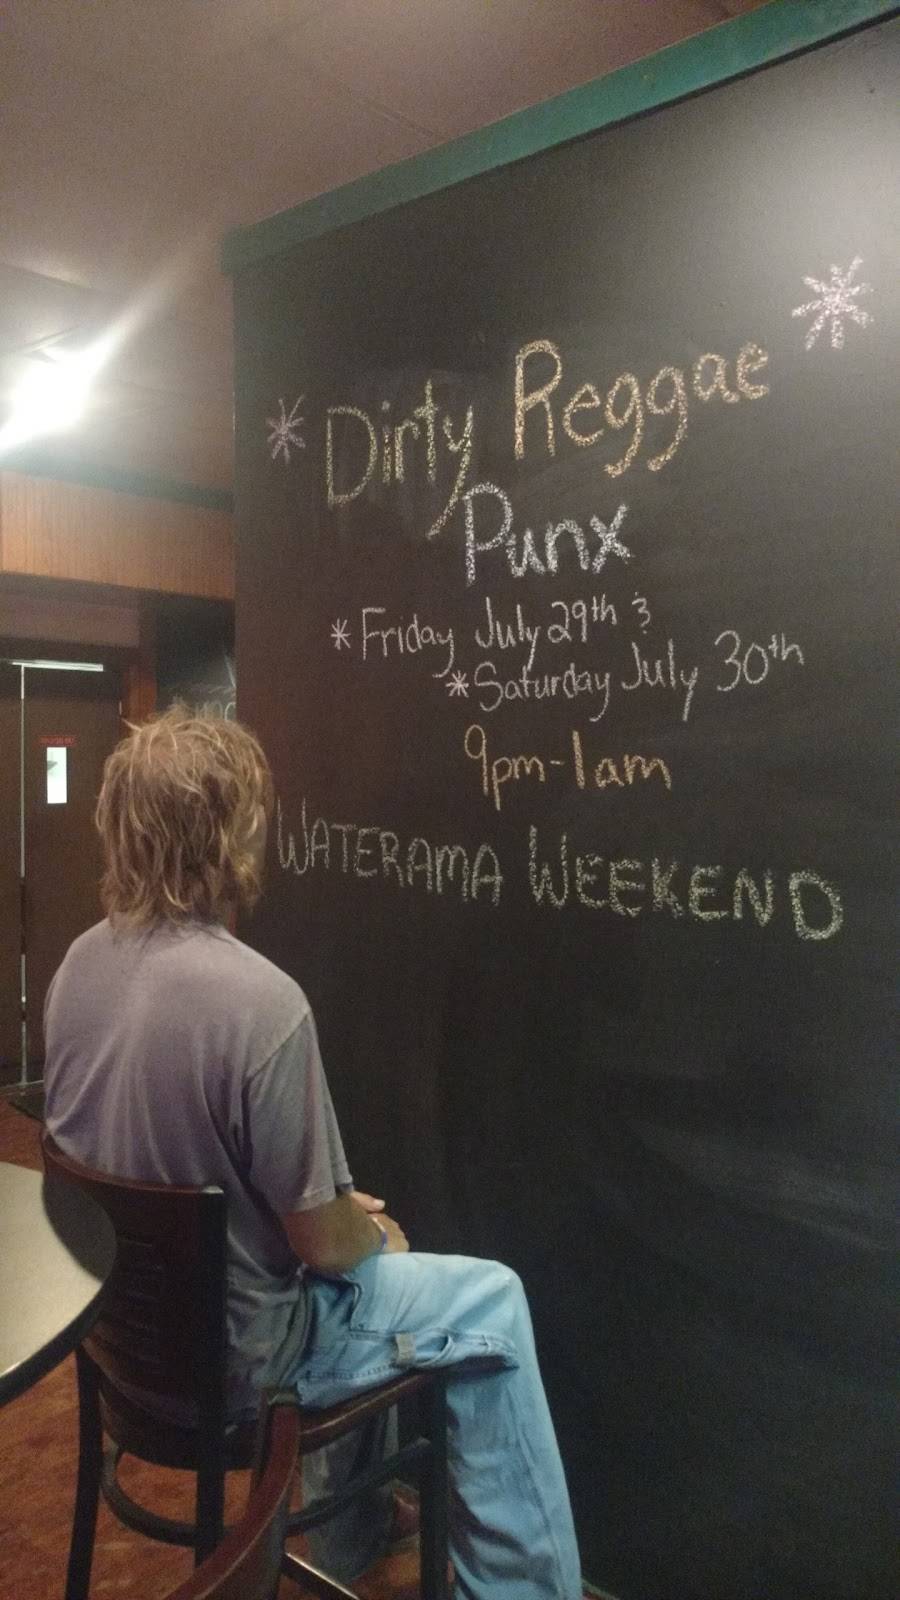 * Dirty Reggae *
Punx
* Friday July 29th &
* Saturday July 30th
9pm-1am
WATERAMA WEEKEND